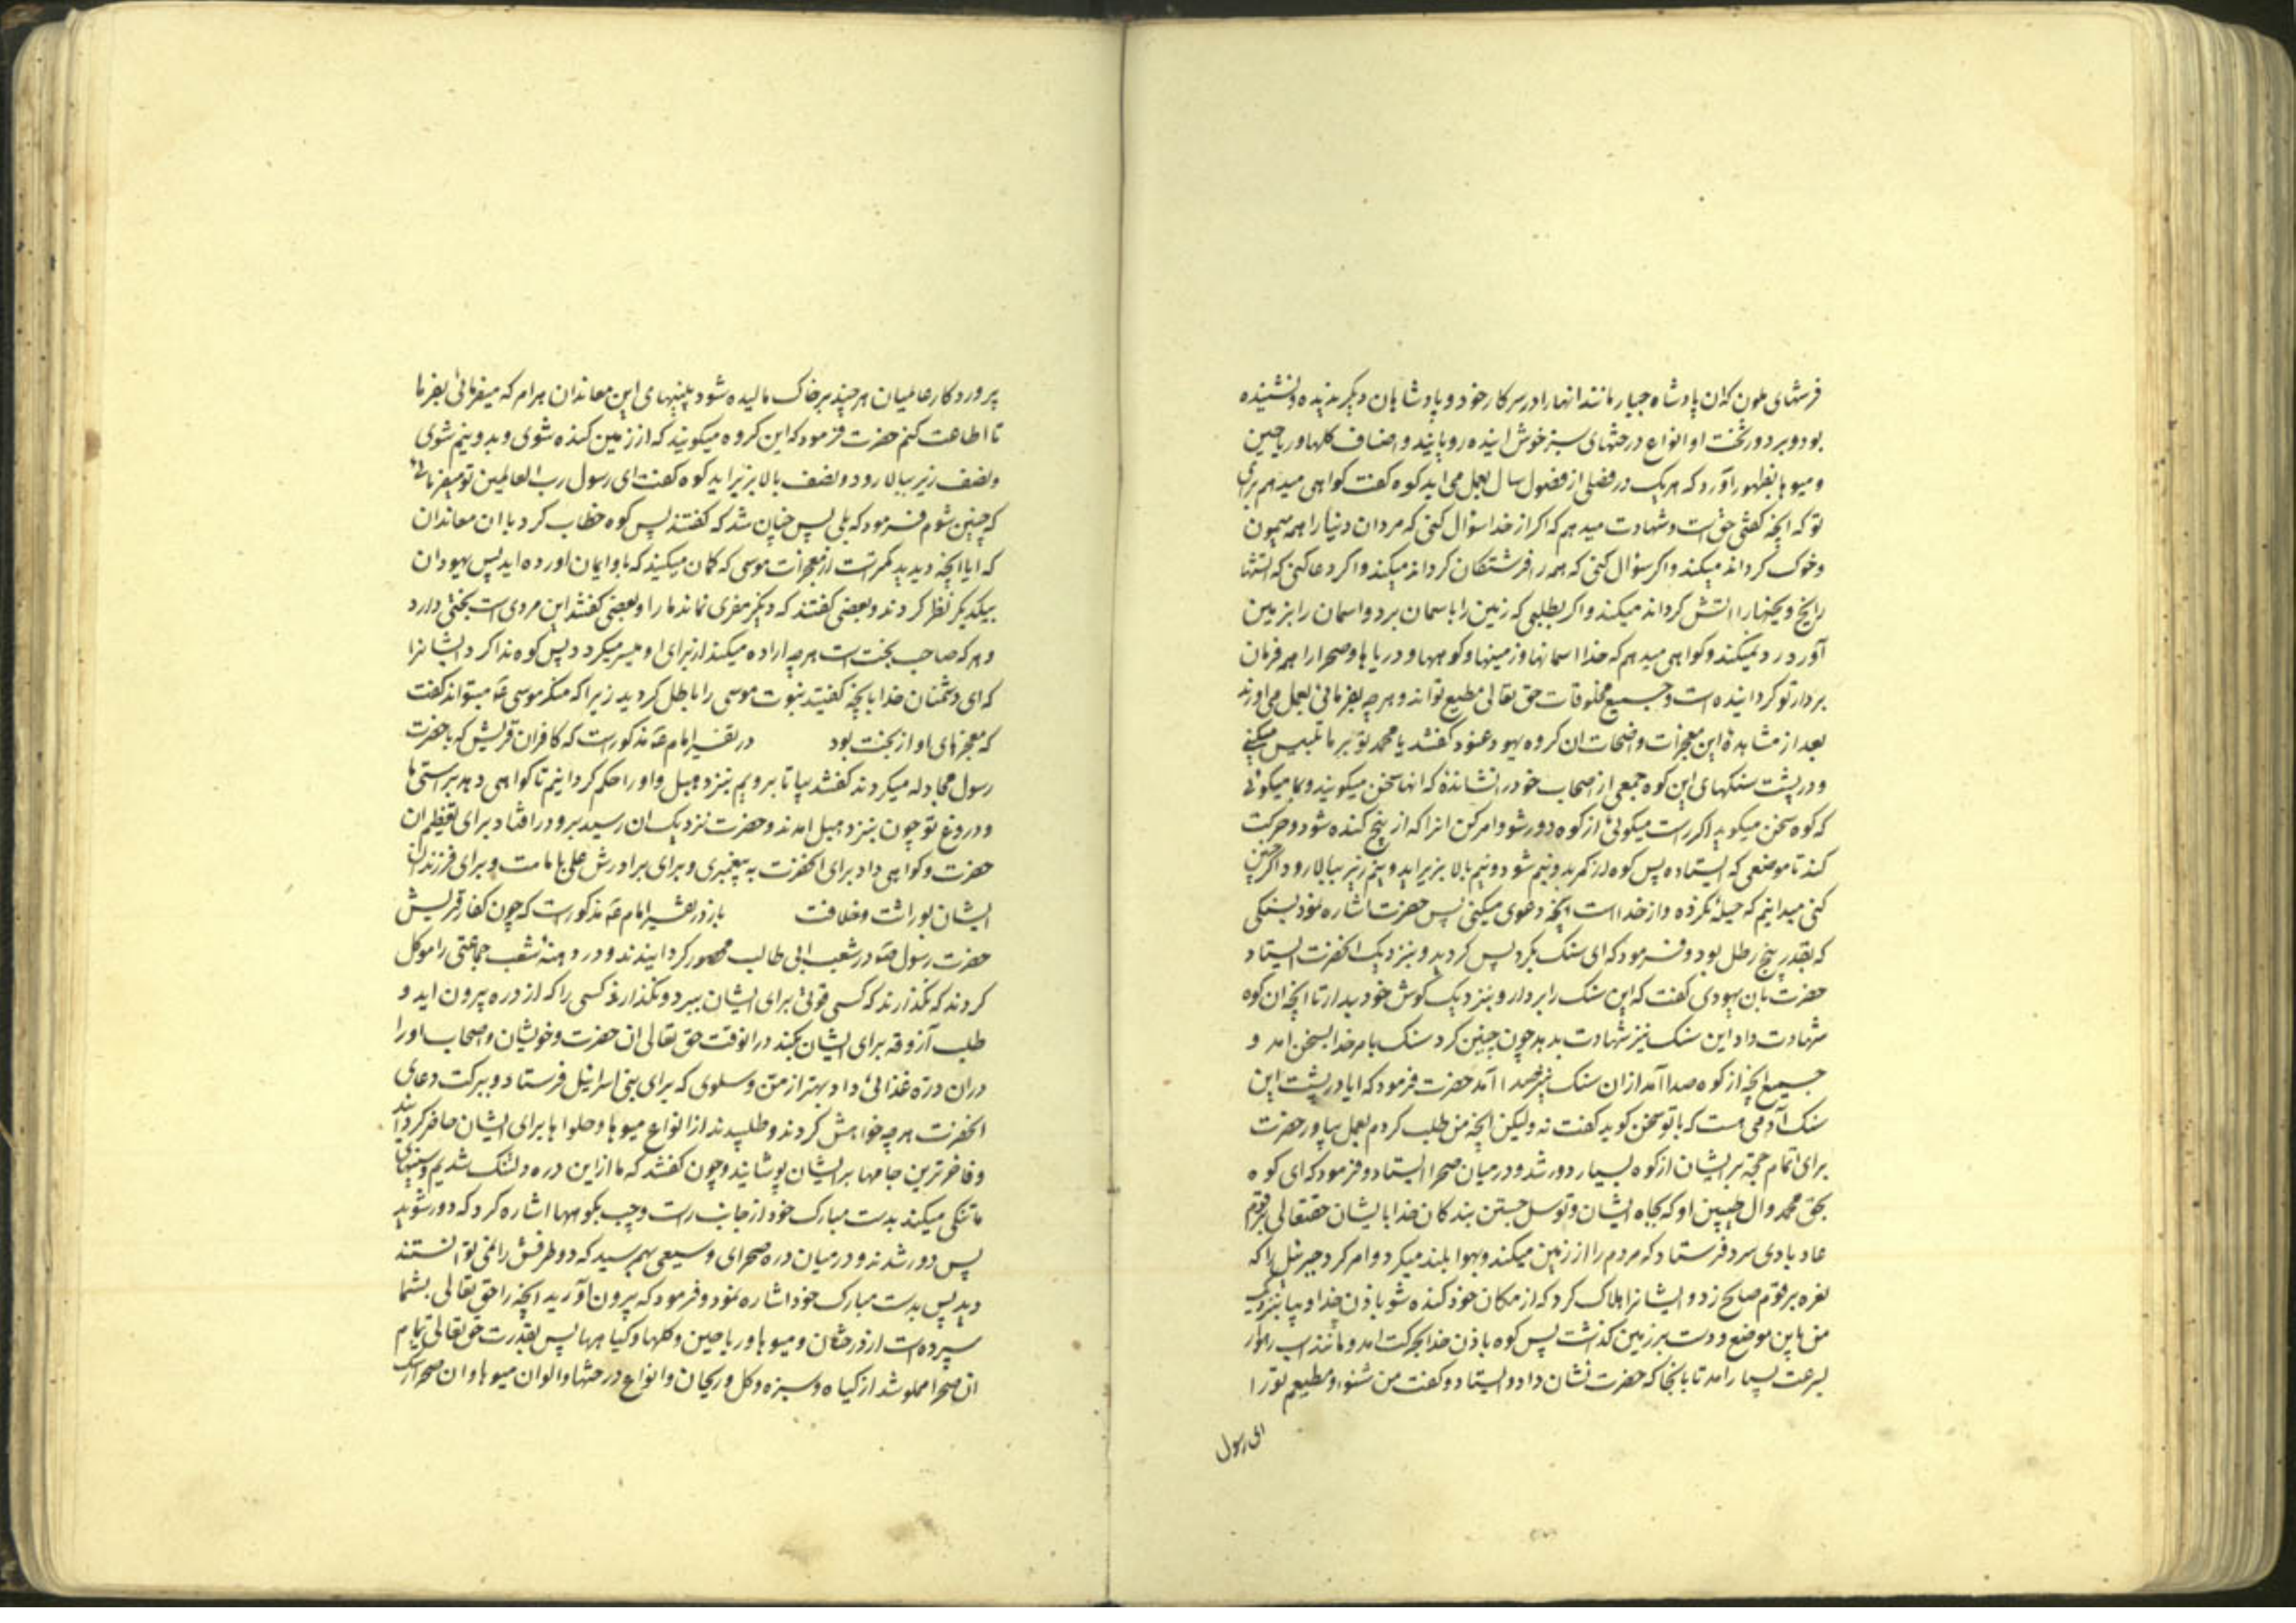 فرشهای ملون که آن پادشاه جبار مانند انها را در سرکار خود و پادشاهان دیکر ندیده و نشنیده
بود و بر دور تخت او انواع درختهای سبز خوش اینده رویانید و اصناف کلها و ریاحین
و میوها بظهور آورد که هر یک در فصلی از فصول سال بعمل می اید کوه کفت کواهی میدهم برای
تو که انچه کفتی حق است و شهادت میدهم که اکر از خدا سؤال کنی که مردان دنیا را همه میمون
و خوک کرداند میکند و اکر سؤال کنی که همه را فرشتکان کرداند میکند و اکر دعا کنی که اتشها
را یخ و یخها را اتش کرداند میکند و اکر بطلبی که زمین را باسمان برد و اسمان را بزمین
آورد رد نمیکند و کواهی میدهم که خدا اسمانها و زمینها و کوهها و دریاها و صحرا را همه فرمان
بردار تو کردانیده است و جمیع مخلوقات حق تعالی مطیع تو اند و هر چه بفرمائی بعمل می اورند
بعد از مشاهدهٔ این معجزات واضحات ان کروه یهود عنود کفتند یا محمد تو بر ما تلبیس میکنی
و در پشت سنکهای این کوه جمعی از اصحاب خود را نشانده که انها سخن میکویند و بما میکوئی
که کوه سخن میکوید اکر راست میکوئی از کوه دور شو و امر کن انرا که از بیخ کنده شود و حرکت
کند تا موضعی که ایستاده پس کوه از کمر بدو نیم شود و نیم بالا بزیر اید و نیم زیر ببالا رود اکر چنین
کنی میدانیم که حیلهٔ نکرده و از خدا است انچه دعوی میکنی پس حضرت اشاره نمود بسنکی
که بقدر پنج رطل بود و فرمود که ای سنک بکرد پس کردید و بنزدیک انحضرت ایستاد
حضرت بان یهودی کفت که این سنک را بردار و بنزدیک کوش خود بدار تا انچه ان کوه
شهادت داد این سنک نیز شهادت بدهد چون چنین کرد سنک بامر خدا بسخن امد و
جمیع انچه از کوه صدا آمد از ان سنک نیز صدا آمد حضرت فرمود که ایا در پشت این
سنک آدمی هست که با تو سخن کوید کفت نه ولیکن انچه من طلب کردم بعمل بیاور حضرت
برای اتمام حجة بر ایشان از کوه بسیار دور شد و در میان صحرا ایستاد و فرمود که ای کوه
بحق محمد و آل طیبین او که بجاه ایشان و توسل جستن بندکان خدا بایشان حقتعالی بر قوم
عاد بادی سرد فرستاد که مردم را از زمین میکند و بهوا بلند میکرد و امر کرد جبرئیل را که
نعره بر قوم صالح زد و ایشانرا هلاک کرد که از مکان خود کنده شو باذن خدا و بیا بنزدیک
من باین موضع و دست بر زمین کذاشت پس کوه باذن خدا بحرکت امد و مانند اسب رهوار
بسرعت بسیار امد تا بانجا که حضرت نشان داد و ایستاد و کفت من شنوا و مطیعم تو را
ای رسول
پروردکار عالمیان هر چند بر خاک مالیده شود بینیهای این معاندان هر امر که میفرمائی بفرما
تا اطاعت کنم حضرت فرمود که این کروه میکویند که از زمین کنده شوی و بدو نیم شوی
و نصف زیر ببالا رود و نصف بالا بزیر اید کوه کفت ای رسول رب العالمین تو میفرمائی
که چنین شوم فرمود که بلی پس چنان شد که کفتند پس کوه خطاب کرد با ان معاندان
که ایا انچه دیدید کمتر است از معجزات موسی که کمان میکنید که باو ایمان اورده اید پس یهودان
بیکدیکر نظر کردند و بعضی کفتند که دیکر مفری نماند ما را و بعضی کفتند این مردی است بختی دارد
و هر که صاحب بخت است هر چه اراده میکند از برای او میسر میکردد پس کوه ندا کرد ایشانرا
که ای دشمنان خدا بانچه کفتید نبوت موسی را باطل کردید زیرا که منکر موسی ع میتواند کفت
که معجزهای او از بخت بود در تفسیر امام ع مذکور است که کافران قریش که با حضرت
رسول مجادله میکردند کفتند بیا تا برویم بنزد هبل و او را حکم کردانیم تا کواهی دهد براستی ما
و دروغ تو چون بنزد هبل امدند و حضرت نزدیک ان رسید برو در افتاد برای تعظیم ان
حضرت و کواهی داد برای انحضرت به پیغمبری و برای برادرش علی بامامت و برای فرزندان
ایشان بوراثت و خلافت باز در تفسیر امام ع مذکور است که چون کفار قریش
حضرت رسول ص در شعب ابی طالب محصور کردانیدند و در دهنهٔ شعب جماعتی را موکل
کردند که نکذارند که کسی قوتی برای ایشان ببرد و نکذارند کسی را که از دره بیرون اید و
طلب آزوقه برای ایشان بکند در انوقت حق تعالی ان حضرت و خویشان و اصحاب او را
دران دره غذائی داد بهتر از من و سلوی که برای بنی اسرائیل فرستاد و ببرکت دعای
انحضرت هر چه خواهش کردند و طلبیدند از انواع میوها و حلواها برای ایشان حاضر کردانید
و فاخر ترین جامها بر ایشان پوشانید و چون کفتند که ما از این دره دلتنک شدیم و سینهای
ما تنکی میکند بدست مبارک خود از جانب راست و چپ بکوهها اشاره کرد که دور شوید
پس دور شدند و در میان دره صحرای وسیعی بهم رسید که دو طرفش را نمی توانستند
دید پس بدست مبارک خود اشاره نمود و فرمود که بیرون آورید انچه را حق تعالی بشما
سپرده است از درختان و میوها و ریاحین و کلها و کیاهها پس بقدرت حق تعالی تمام
ان صحرا مملو شد از کیاه و سبزه و کل و ریحان و انواع درختها و الوان میوها و ان صحرا